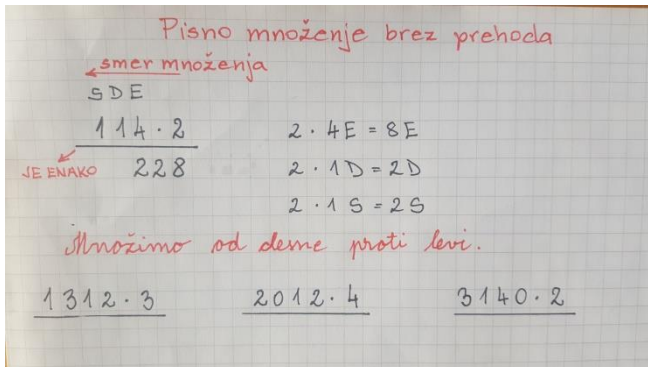 Pisno množenje brez prehoda
smer množenja
S D E
114 · 2
JE ENAKO 228
2 · 4E = 8E
2 · 1D = 2D
2 · 1S = 2S
Množimo od desne proti levi.
1312 · 3 2012 · 4 3140 · 2